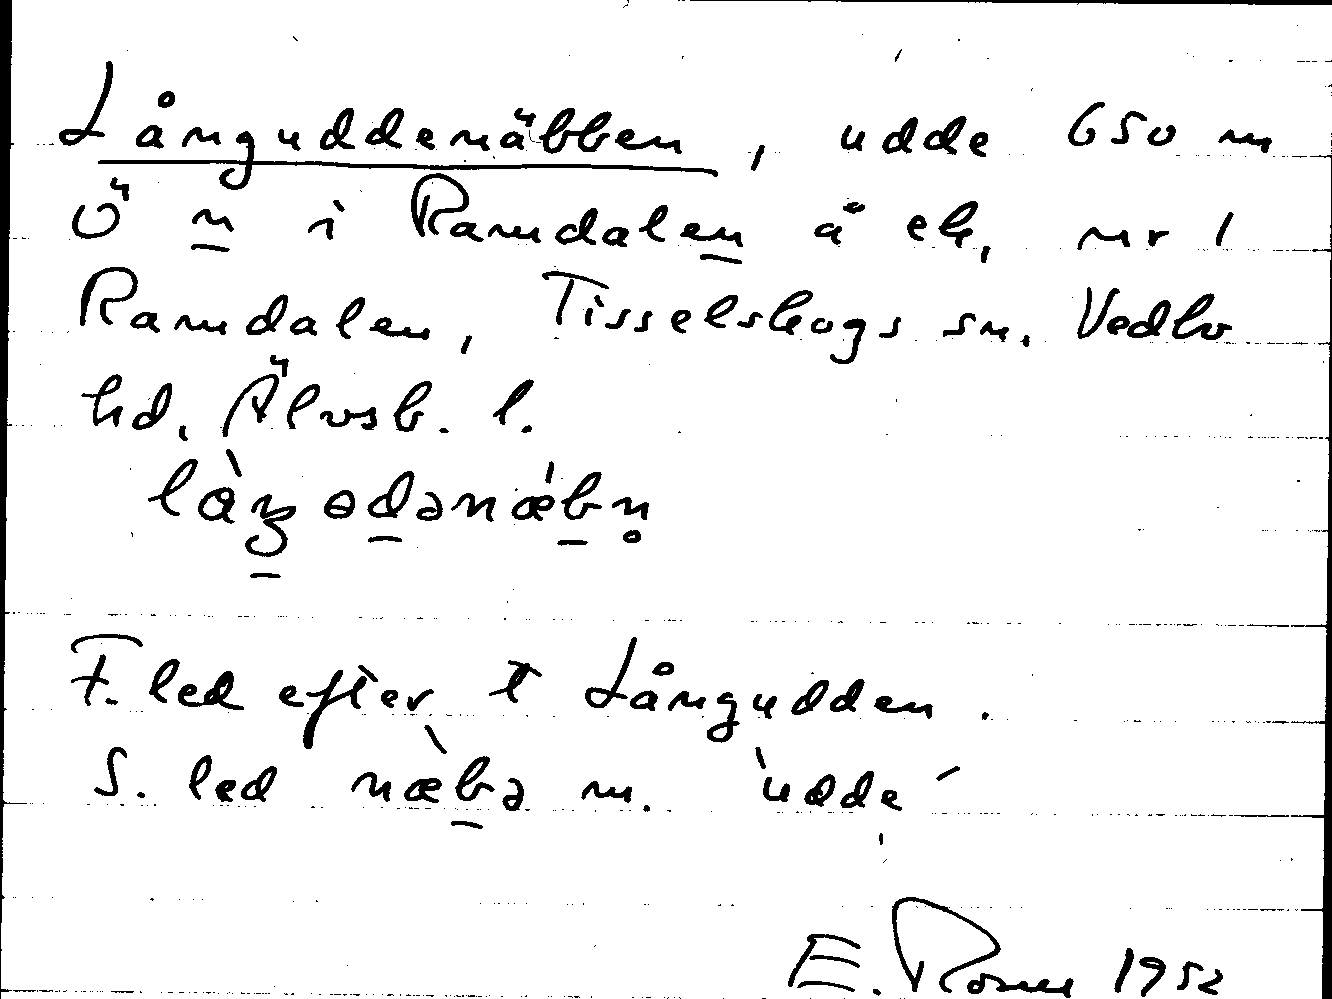 Långuddenäbben, udde 650 m
Ö n i Ramdalen å ek, nr 1
Ramdalen, Tisselskogs sn. Vedbo
hd. Älvsb. l.
F. led efter t Långudden.
S. led næbə m. 'udde'
E. 1952